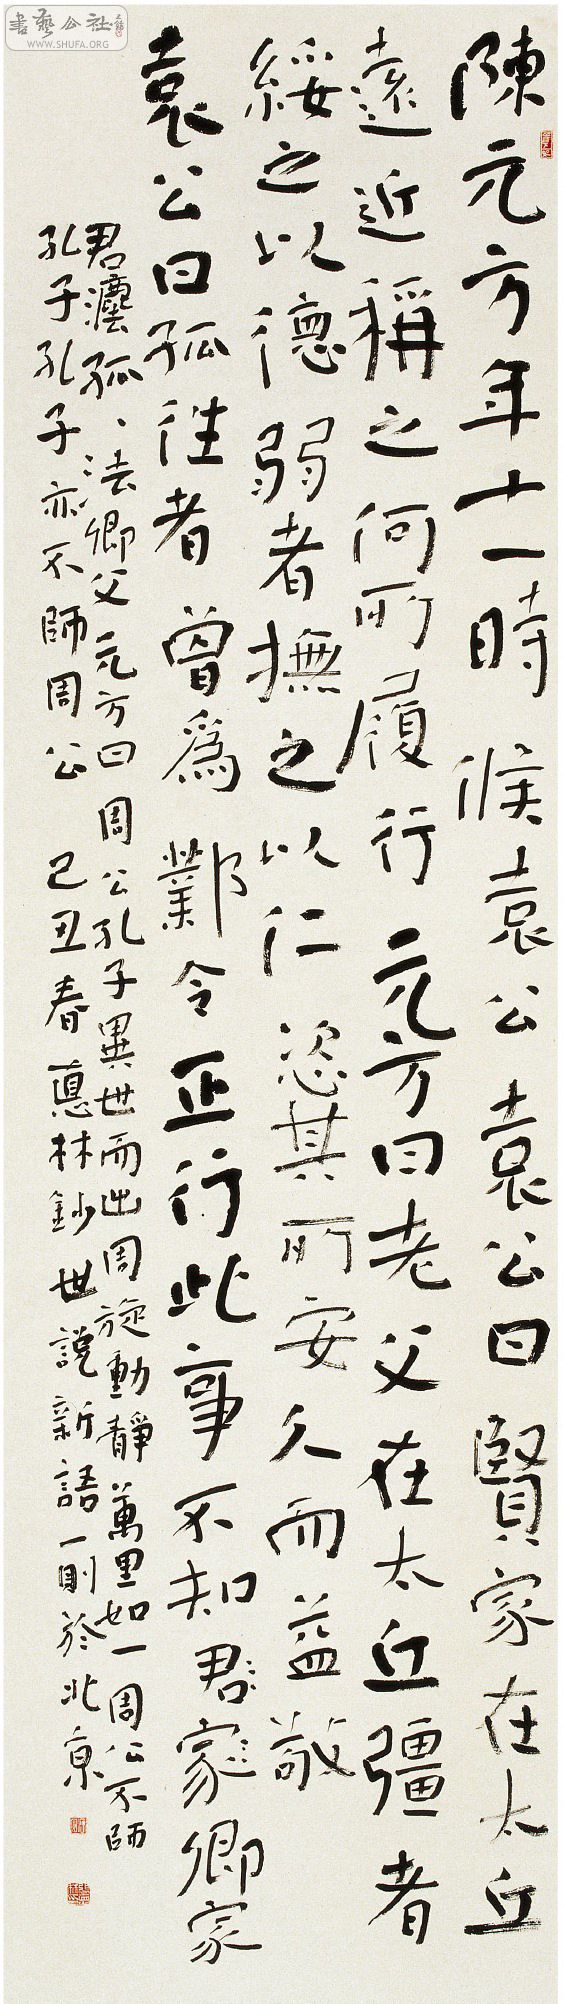 書藝公社
WWW.SHUFA.ORG
陳元方年十一時候袁公袁公曰賢家在太丘
遠近稱之何所履行元方曰老父在太丘彊者
綏之以德弱者撫之以仁恣其所安久而益敬
袁公曰孤往者曾爲鄴令正行此事不知君家卿家
君灋孤、法卿父元方曰周公孔子異世而出周旋動靜萬里如一周公不師
孔子孔子亦不師周公 己丑春悳林鈔世説新語一則於北京